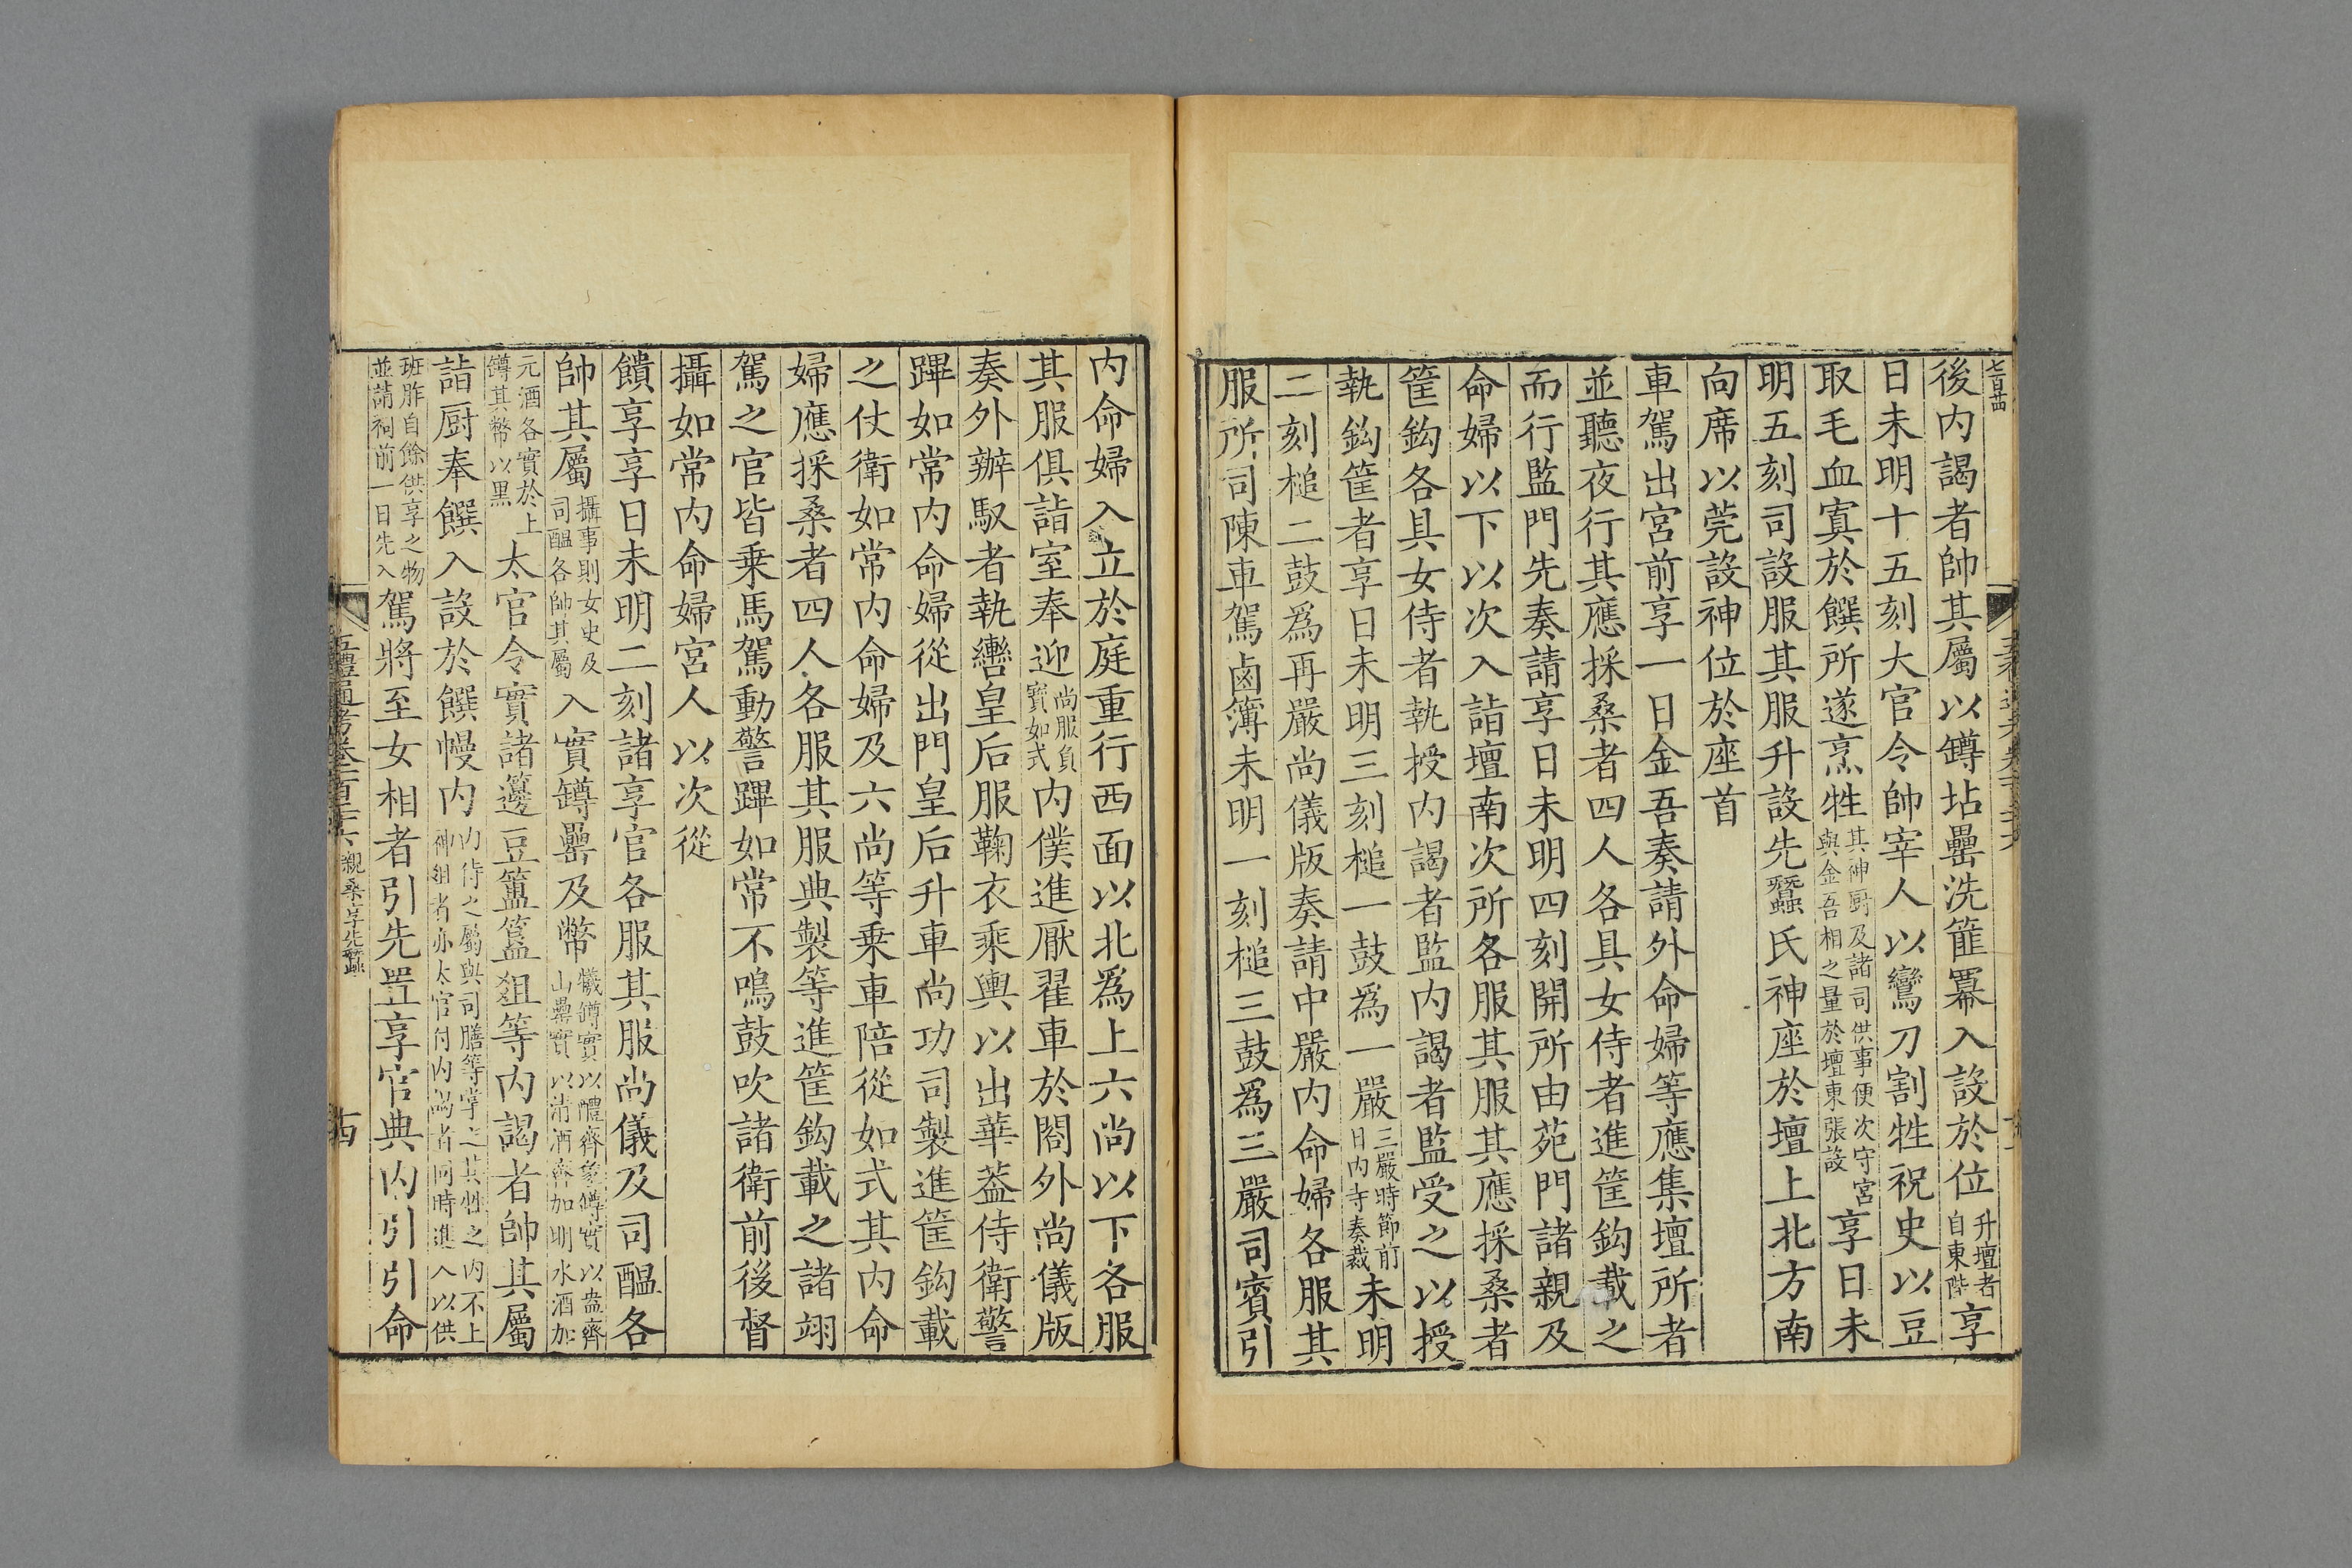 七百廿
後内謁者帥其屬以罇坫罍洗篚羃入設於位升壇者自東階享
日未明十五刻大官令帥宰人以鸞刀割牲祝史以豆
取毛血寘於饌所遂烹牲其神厨及諸司供事便次守宮與金吾相之量於壇東張設享日未
明五刻司設服其服升設先蠶氏神座於壇上北方南
向席以莞設神位於座首
車駕出宮前享一日金吾奏請外命婦等應集壇所者
並聽夜行其應採桑者四人各具女侍者進筐鈎載之
而行監門先奏請享日未明四刻開所由苑門諸親及
命婦以下以次入詣壇南次所各服其服其應採桑者
筐鈎各具女侍者執授内謁者監内謁者監受之以授
執鈎筐者享日未明三刻槌一鼓爲一嚴三嚴時節前日内寺奏裁未明
二刻槌二鼓爲再嚴尚儀版奏請中嚴内命婦各服其
服所司陳車駕鹵簿未明一刻槌三鼓爲三嚴司賓引
内命婦入立於庭重行西面以北爲上六尚以下各服
其服俱詣室奉迎尚服負寶如式内僕進厭翟車於閤外尚儀版
奏外辦馭者執轡皇后服鞠衣乘輿以出華蓋侍衛警
蹕如常内命婦從出門皇后升車尚功司製進筐鈎載
之仗衛如常内命婦及六尚等乗車陪從如式其内命
婦應採桑者四人各服其服典製等進筐鈎載之諸翊
駕之官皆乗馬駕動警蹕如常不鳴鼓吹諸衛前後督
攝如常内命婦宮人以次從
饋享享日未明二刻諸享官各服其服尚儀及司醖各
帥其屬攝事則女史及司醖各帥其屬入實罇罍及幣犧罇實以醴齊象罇實以盎齊山罍實以清酒齊加明水酒加
元酒各實於上罇其幣以黑太官令實諸籩豆簠簋俎等内謁者帥其屬
詣厨奉饌入設於饌幔内内侍之屬與司膳等掌之其牲之内不上神俎者亦太官付内謁者同時進入以供
班胙自餘供享之物並請祠前一日先入駕將至女相者引先置享官典内引引命
五禮通考卷一百二十六 親桑享先蠶 十四